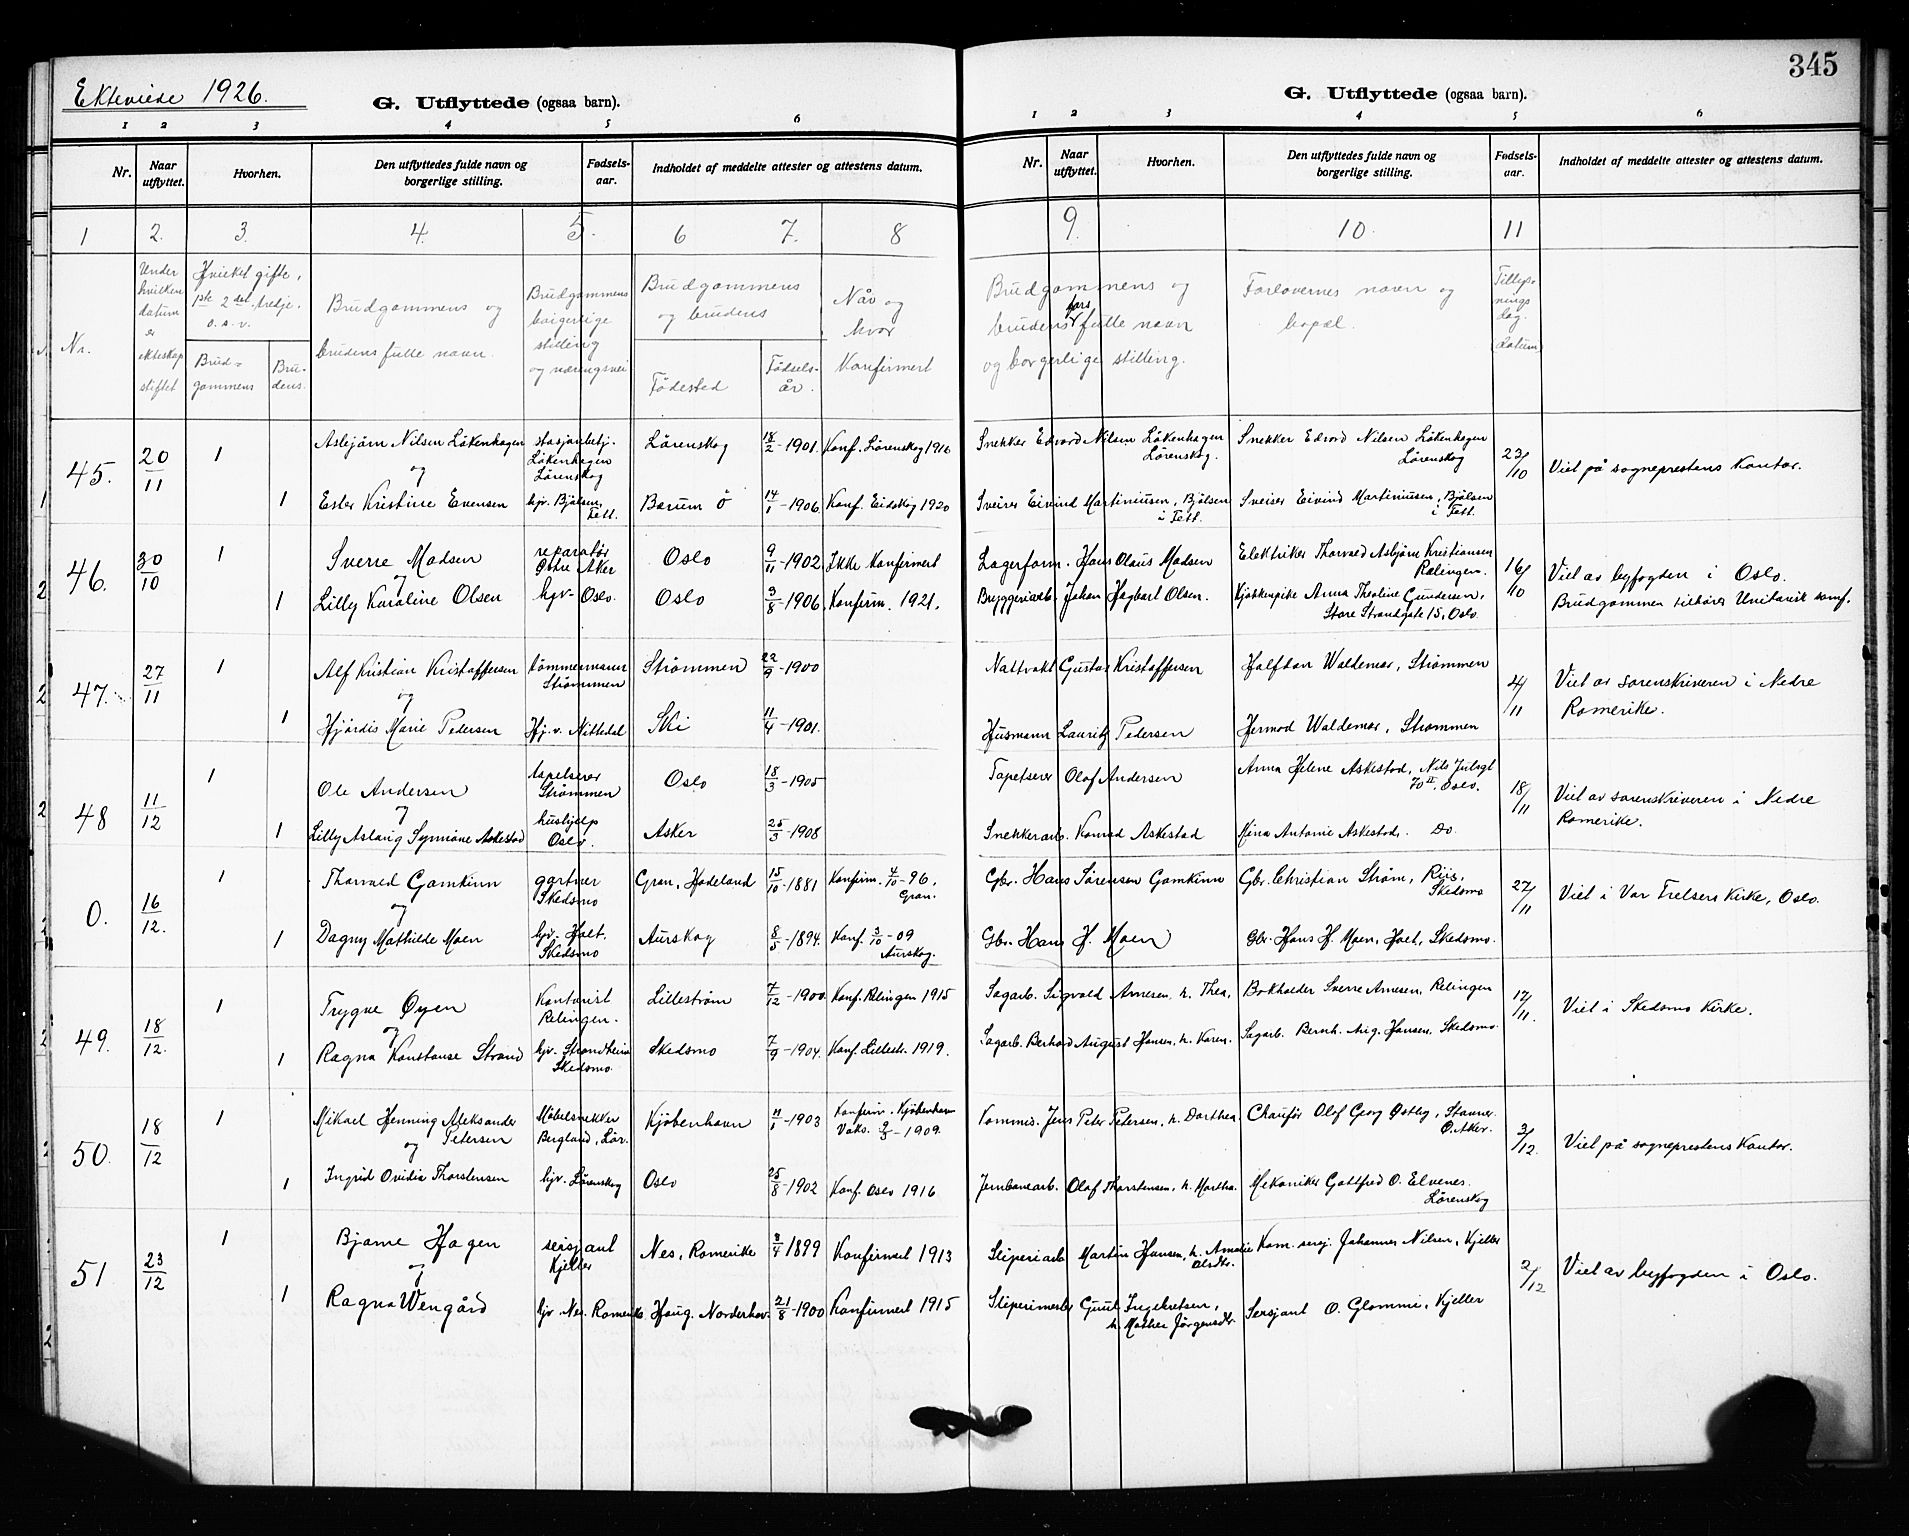 345
Ekteviede 1926.
G. Utflyttede (ogsaa barn).
1 2 3 4 5 6
Nr. Naar utflyttet. Hvorhen. Den utflyttedes fulde navn og borgerlige stilling. Fødsels-aar. Indholdet af meddelte attester og attestens datum.
G. Utflyttede (ogsaa barn).
1 2 3 4 5 6
Nr. Naar utflyttet. Hvorhen. Den utflyttedes fulde navn og borgerlige stilling. Fødsels-aar. Indholdet af meddelte attester og attestens datum.
1 2. 3. 4. 5. 6 7. 8 9. 10. 11
Nr.
Under hvilken datum er ekteskap stiftet
Hvilket gifte, 1ste 2det tredje. o.s.v.
Brud=gommens
Bru-dens.
Brudgommens og brudens fulle navn.
Brudgommens borgerlige stilling og næringsvei
Brudgommens og brudens
Fødested
Fødsels-år.
Når og hvor Konfirmert
Brudgommens og brudens fars fulle navn og borgerlige stilling.
Forlovernes navn og bopæl.
datum
45. 20/11 1 Asbjørn Nilsen Løkenhagen stasjonbetj. Løkenhagen Lørenskog Lørenskog 18/2-1901. Konf. Lørenskog 1916 Snekker Edvard Nilsen Løkenhagen Lørenskog. Snekker Edvard Nilsen Løkenhagen Lørenskog 23/10 Viet på sogneprestens Kontor.
og
1 Ester Kristine Evensen hjv. Bjølsen, Fett. Bærum Ø 14/1-1906. Konf. Eidskog 1920 Sveiser Eivind Martiniussen, Bjølsen i Fett. Sveiser Eivind Martiniussen, Bjølsen i Fett.
46. 30/10 1 Sverre Madsen reparatør Østre Aker Oslo 9/11-1902. Ikke Konfirmert Lagerform. Hans Olaus Madsen Elektriker Thorvald Asbjørn Kristiansen Rælingen. 16/10 Viet av byfogden i Oslo.
og
1 Lilly Karoline Olsen hjv. Oslo. Oslo 3/8-1906. Konfirm. 1921. Bryggeriarb. Johan Hagbart Olsen. Kjøkkenpike Anna Theoline Gundersen, Store Strandgate 15, Oslo. Brudgommen tilhører Unitarisk samf.
47. 27/11 1 Alf Kristian Kristoffersen tømmermann Strømmen Strømmen 22/9-1900 Nattvakt Gustav Kristoffersen Halfdan Waldemar, Strømmen 4/11 Viet av sorenskriveren i Nedre Romerike.
og
1 Hjørdis Marie Pedersen Hj. v. Nittedal Ski 11/4-1901. Husmann Lauritz Pedersen Hermod Waldemar, Strømmen
48 11/12 1 Ole Andersen Tapetserer Strømmen Oslo 18/3-1905 Tapetserer Olof Andersen Anna Helene Askestad, Nils Julsgt 70 II. Oslo. 18/11 Viet av sorenskriveren i Nedre Romerike.
og
1 Lilly Aslaug Synnøve Askestad hushjelp Oslo. Asker 25/3-1908 Snekkerarb. Konrad Askestad Antonie Askestad. Do.
0. 16/12. 1 Thorvald Gamkinn gartner Skedsmo Gran, Hadeland 15/10-1881 Konfirm. 4/10-96, Gran. Gbr. Hans Sørensen Gamkinn Gbr. Christian Strøm, Riis, Skedsmo 27/11 Viet i Vor Frelsers Kirke, Oslo.
og
1 Dagny Mathilde Moen hjv. Holt. Skedsmo Aurskog 8/5-1894. Konf. 3/10-09 Aurskog. Gbr. Hans H. Moen Gbr. Hans H. Moen, Holt, Skedsmo.
49. 18/12. 1 Trygve Øyen Kontorist Relingen. Lillestrøm 7/12-1900. Konf. Relingen 1915 Sagarb. Sigvald Arnesen, h. Thea, Bokholder Sverre Arnesen, Relingen 17/11. Viet i Skedsmo Kirke.
og
1 Ragna Konstanse Strand hjv. Strandheim Skedsmo. Skedsmo 7/9-1904. Konf. Lillestr. 1919. Sagarb. Berhard August Hansen, h. Karen. Sagarb. Bernh. Aug. Hansen, Skedsmo.
50. 18/12 1 Mikael Henning Aleksander Petersen Møbelsnekker Bergland, Lør. Kjøbenhavn 11/1-1903 Konfirm. Kjøbenhavn Vaks. 9/3-1909. Kommis. Jens Peter Petersen, h. Dorthea. Chauffør Olof Georg Østby, Stovner Ø. Aker. 3/12. Viet på sogneprestens Kontor.
og
1 Ingrid Ovidia Thorstensen hjv. Lørenskog Oslo 25/8-1902 Konf. Oslo 1916 Jernbanearb. Olaf Thorstensen, h. Martha. Mekaniker Gottfred O. Elvenes. Lørenskog
51. 23/12 1 Bjarne Hagen sersjant Kjeller Nes, Romerike 3/4 1899 Konfirmert 1913 Sliperiarb Martin Hansen, h. Amalie Olsdtr. Kom. sersj. Johannes Nilsen, Kjeller 2/12 Viet av byfogden i Oslo.
og
1 Ragna Wengård hjv Nes. Romerike Haug, Norderhov. 21/8-1900 Konfirmert 1915 Sliperimester Ingebretsen, h. Mathea Jørgensdtr. Sersjant O. Glommi, Kjeller